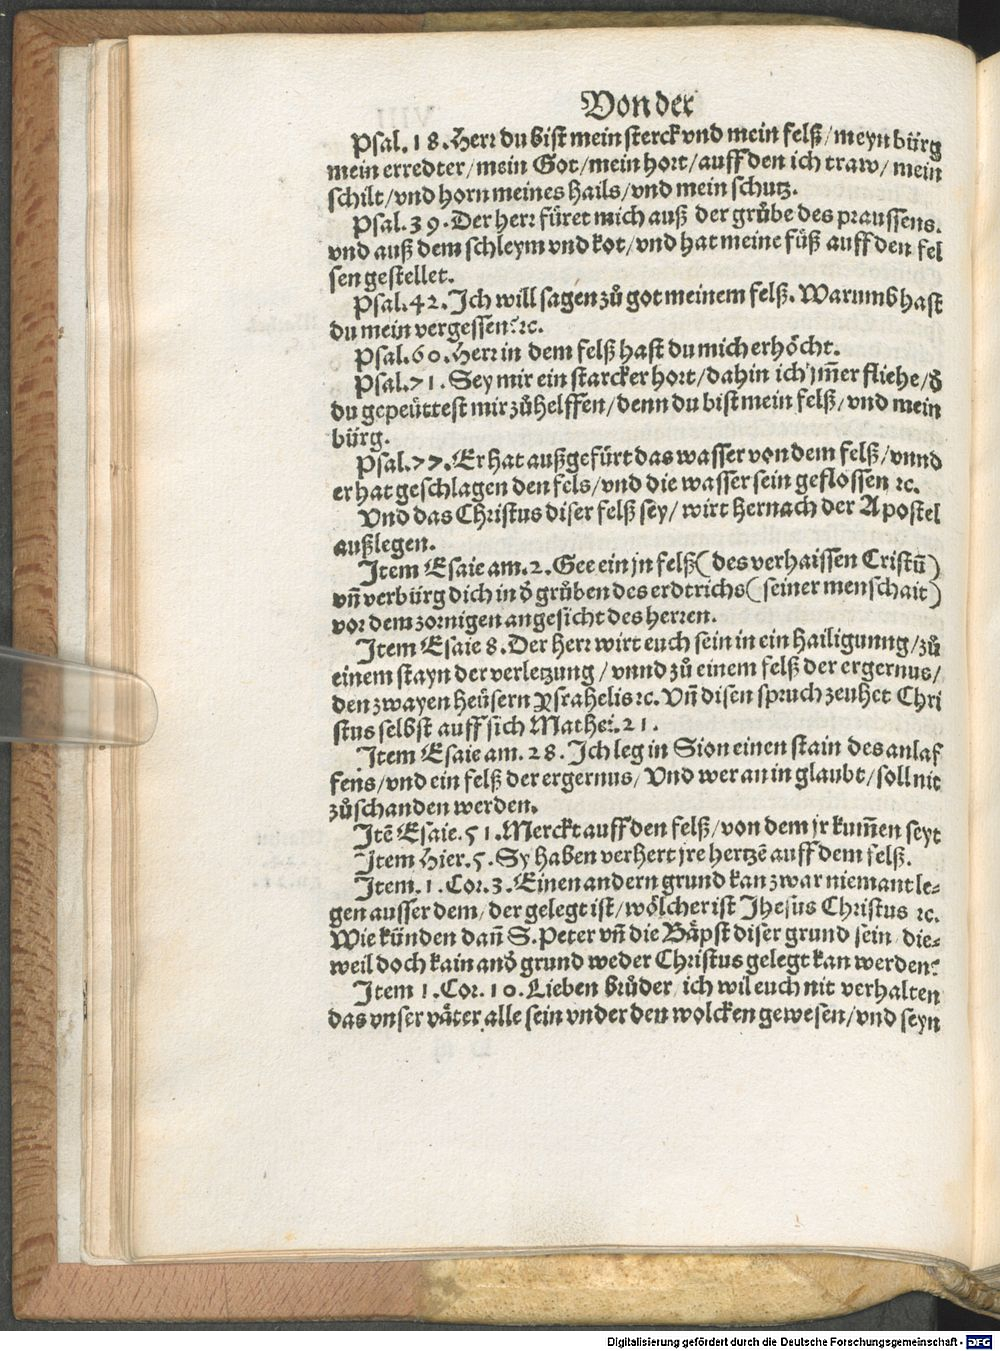 Von der
Psal. 18. Herr du bist mein sterck vnd mein felß/ meyn bürg
mein erredter/ mein Got/ mein hort/ auff den ich traw/ mein
schilt/ vnd horn meines hails/ vnd mein schutz.
Psal. 39. Der herr füret mich auß der grůbe des praussens.
vnd auß dem schleym vnd kot/ vnd hat meine füß auff den fel
sen gestellet.
Psal. 42. Ich will sagen zů got meinem felß. Warumb hast
du mein vergessen? ꝛc.
Psal. 60. Herr in dem felß hast du mich erhöcht.
Psal. 71. Sey mir ein starcker hort/ dahin ich jm̃er fliehe/ d̕
du gepeüttest mir zů helffen/ denn du bist mein felß/ vnd mein
bürg.
Psal. 77. Er hat außgefürt das wasser von dem felß/ vnnd
er hat geschlagen den fels/ vnd die wasser sein geflossen ꝛc.
Vnd das Christus diser felß sey/ wirt hernach der Apostel
außlegen.
Item Esaie am. 2. Gee ein jn felß (des verhaissen Cristū)
vñ verbürg dich in d̕ grůben des erdtrichs (seiner menschait)
vor dem zornigen angesicht des herren.
Item Esaie 8. Der herr wirt euch sein in ein hailigunng/ zů
einem stayn der verletzung/ vnnd zů einem felß der ergernus/
den zwayen heüsern Ysrahelis ꝛc. Vñ disen spruch zeuhet Chri
stus selbst auff sich Mathei. 21.
Item Esaie am. 28. Ich leg in Sion einen stain des anlaf
fens/ vnd ein felß der ergernus/ Vnd wer an in glaubt/ soll nit
zů schanden werden.
Itē Esaie. 51. Merckt auff den felß/ von dem jr kum̃en seyt
Item Hier. 5. Sy haben verhert jre hertzē auff dem felß.
Item. 1. Cor. 3. Einen andern grund kan zwar niemant le⸗
gen ausser dem/ der gelegt ist/ wölcher ist Jhesus Christus ꝛc.
Wie künden dañ S. Peter vñ die Bäpst diser grund sein/ die⸗
weil doch kain and̕ grund weder Christus gelegt kan werden?
Item 1. Cor. 10. Lieben brůder/ ich wil euch nit verhalten
das vnser väter alle sein vnder den wolcken gewesen/ vnd seyn
Digitalisierung gefördert durch die Deutsche Forschungsgemeinschaft - DFG